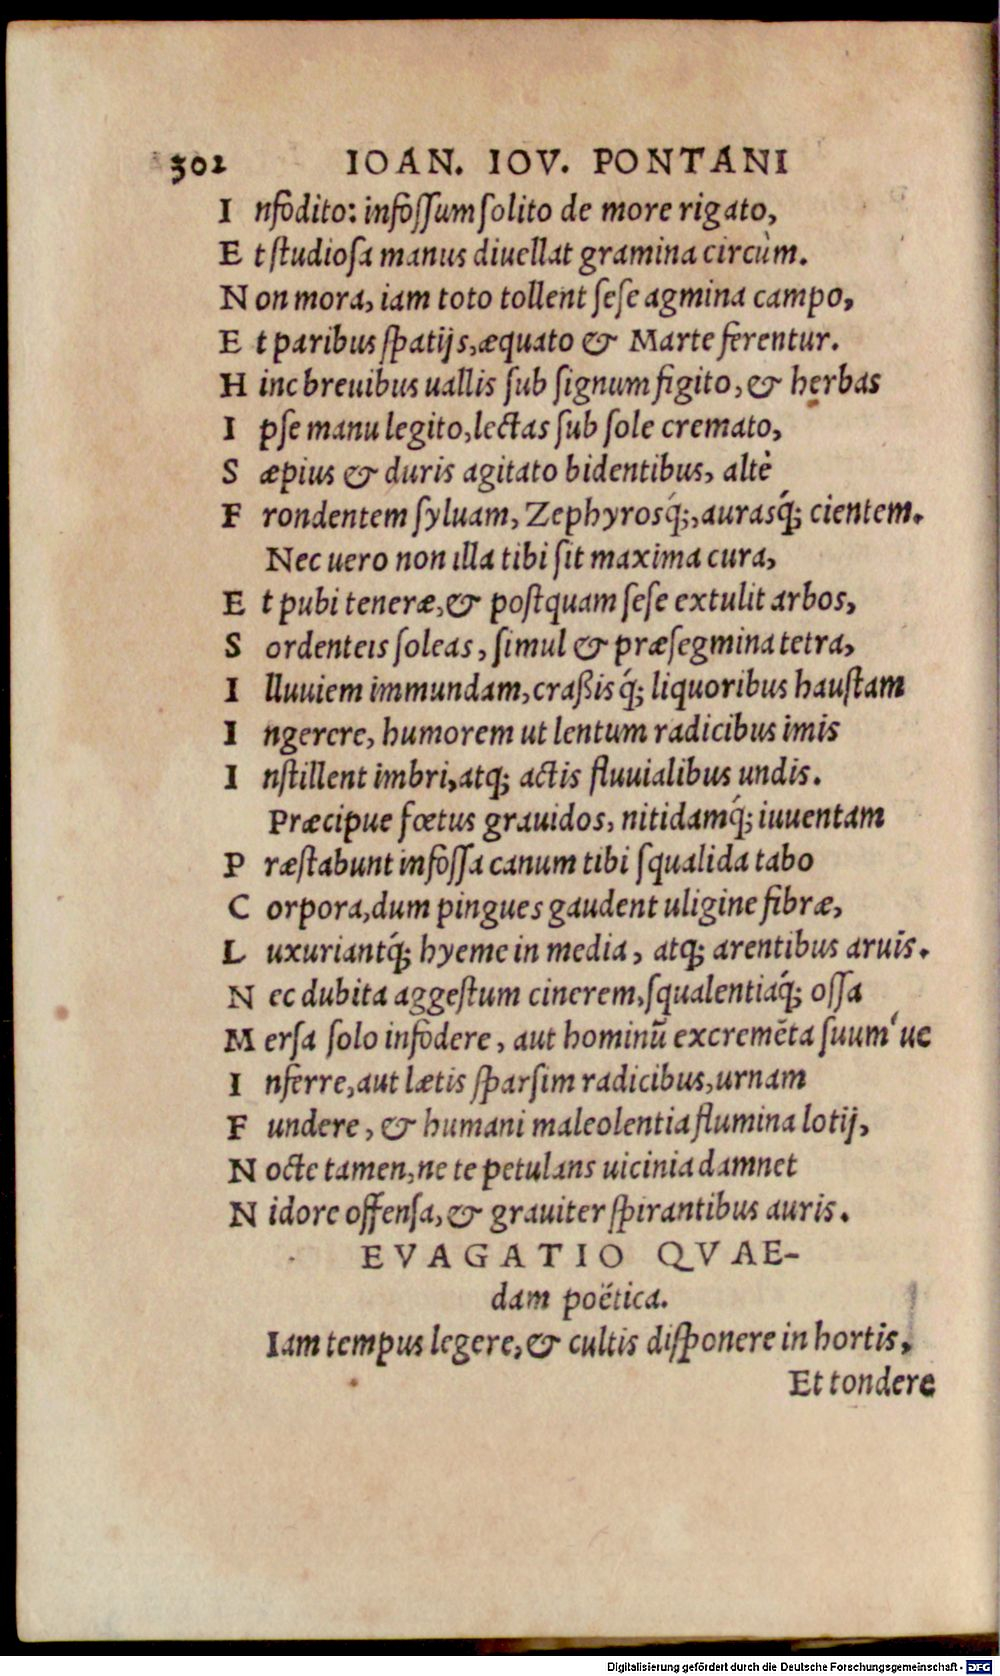 302 IOAN. IOV. PONTANI
I nfodito: infoſſum ſolito de more rigato,
E t ſtudioſa manus diuellat gramina circùm.
N on mora, iam toto tollent ſeſe agmina campo,
E t paribus ſpatijs, æquato & Marte ferentur.
H inc breuibus uallis ſub ſignum figito, & herbas
I pſe manu legito, lectas ſub ſole cremato,
S æpius & duris agitato bidentibus, altè
F rondentem ſyluam, Zephyrosq́;, aurasq́; cientem.
Nec uero non illa tibi ſit maxima cura,
E t pubi teneræ, & poſtquam ſeſe extulit arbos,
S ordenteis ſoleas, ſimul & præſegmina tetra,
I lluuiem immundam, craßis q́; liquoribus hauſtam
I ngerere, humorem ut lentum radicibus imis
I nſtillent imbri, atq; actis fluuialibus undis.
Præcipue fœtus grauidos, nitidamq́; iuuentam
P ræſtabunt infoſſa canum tibi ſqualida tabo
C orpora, dum pingues gaudent uligine fibræ,
L uxuriantq́; hyeme in media, atq; arentibus aruis.
N ec dubita aggeſtum cinerem, ſqualentiaq́; oſſa
M erſa ſolo infodere, aut hominũ excremẽta ſuum'ue
I nferre, aut lætis ſparſim radicibus, urnam
F undere, & humani maleolentia flumina lotij,
N octe tamen, ne te petulans uicinia damnet
N idore offenſa, & grauiter ſpirantibus auris.
EVAGATIO QVAE-
dam poëtica.
Iam tempus legere, & cultis diſponere in hortis,
Et tondere
Digitalisierung gefördert durch die Deutsche Forschungsgemeinschaft - DFG